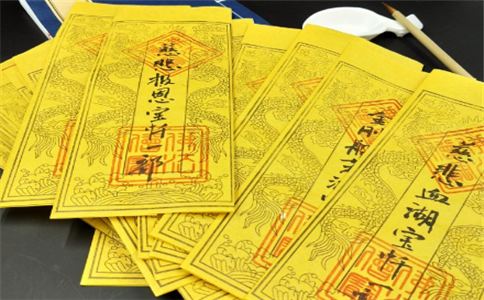 慈悲报恩宝忏一部
金刚般若
慈悲血湖宝忏一